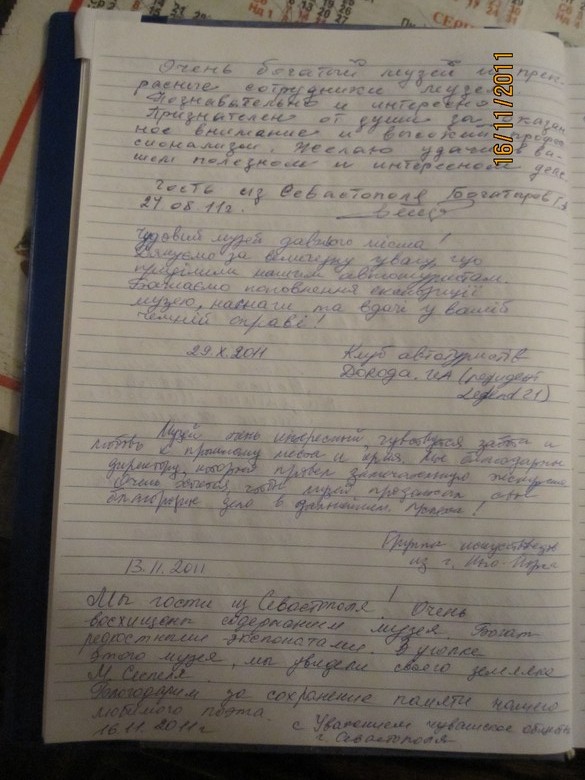 Очень богатый музей и прек-
расные сотрудники музея.
Познавательно и интересно.
Признателен от души за оказан-
ное внимание и высокий профес-
сионализм. Желаю удачи в ва-
шем полезном и интересном деле.
Гость из Севастополя
27 08 11г.
Чудовий музей давнього міста!
Дякуємо за величезну увагу, що
приділили нашим автотуристам.
Бажаємо поповнення експозиції
музею, наснаги та вдачі у вашій
чемній справі!
29.X.2011 Клуб автотуристів
(резидент
Legend 21)
Музей очень интересный, чувствуется забота и
любовь к прошлому места и края. Мы благодарны
директору, который провел замечательную экскурсию.
Очень хочется, чтобы музей продолжал свое
благородное дело в дальнейшем.
Группа искусствоведов
из г. Нью-Йорка
13.11.2011
Мы гости из Севастополя! Очень
восхищены содержанием музея. Богат
редкостными экспонатами. В уголке
этого музея, мы увидели своего земляка
М. Сеспеля.
Благодарим за сохранение памяти нашего
любимого поэта.
16.11.2011г с Уважением чувашское общество
г. Севастополя
16/11/2011